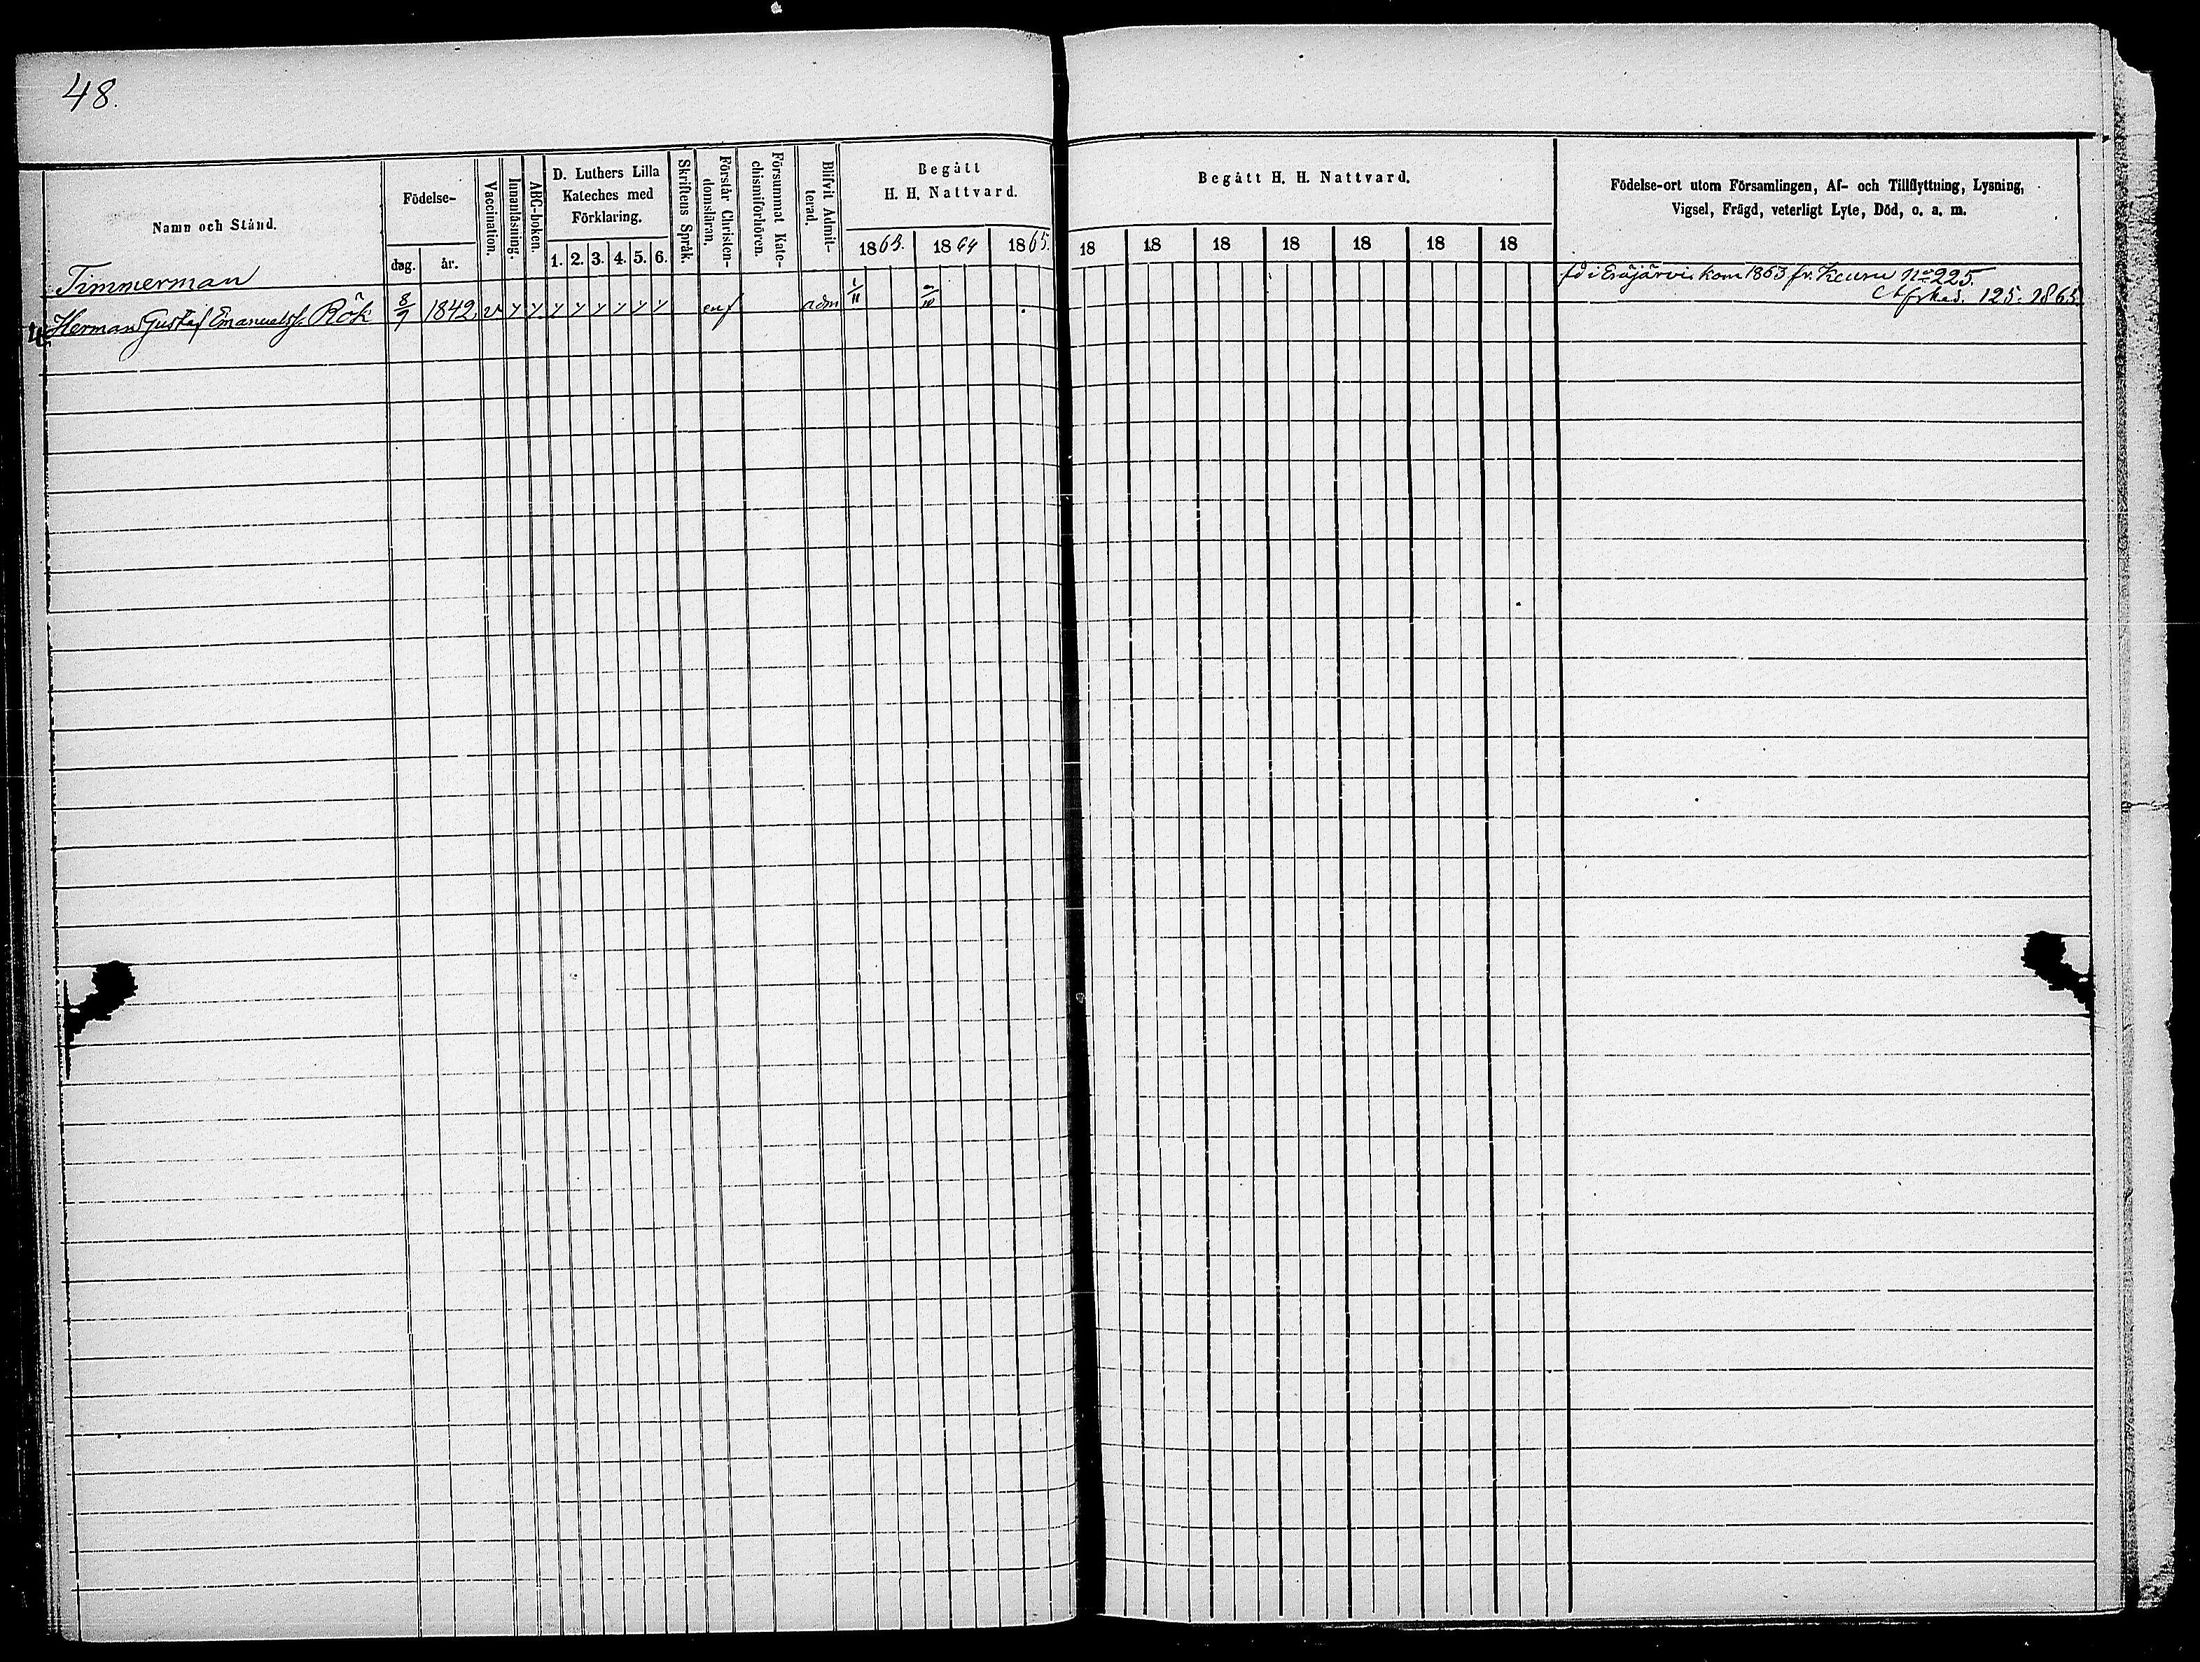 48.
Namn och Stånd.
Födelse-
dag. år.
Vaccination.
Innanläsning.
ABC-boken.
D. Luthers Lilla
Kateches med
Förklaring.
1. 2. 3. 4. 5. 6.
Skriftens Språk.
Förstår Christen-
domsläran.
Försummat Kate-
chismiförhören.
Blifvit Admit-
terad.
Begått
H. H. Nattvard.
1863. 1864 1865.
Begått H. H. Nattvard.
18 18 18 18 18 18 18
Födelse-ort utom Församlingen, Af- och Tillflyttning, Lysning,
Vigsel, Frägd, veterligt Lyte, Död, o. a. m.
Timmerman
Herman Gustaf Emanuelss. Rök 8/7 1842. v y y y y y y y y enf adm 1/11
fd i Eräjärvi kom 1863 fr. Keuru No 225.
125. 1865